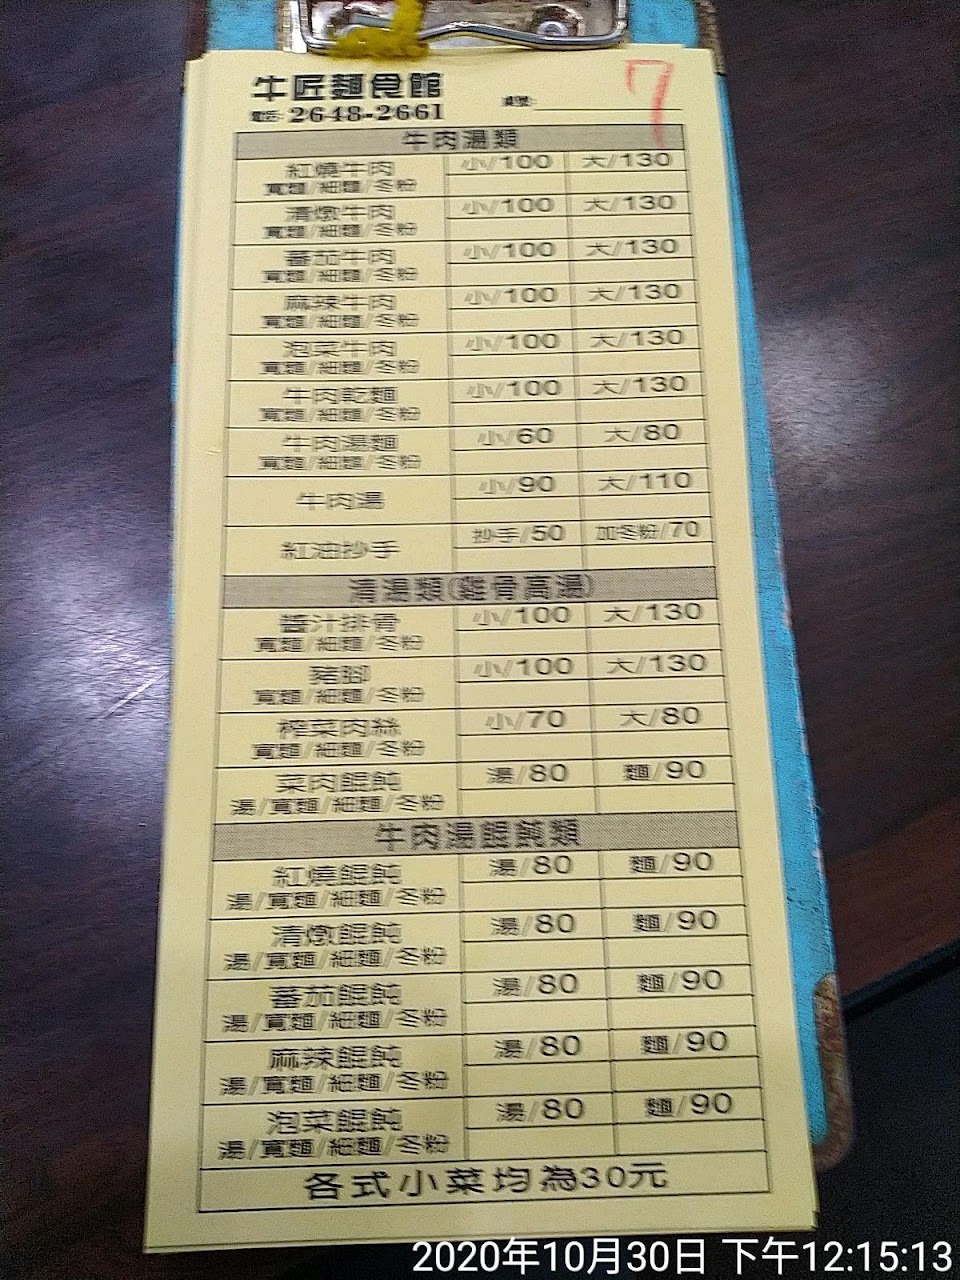 牛匠麵食館
電話: 2648-2661
桌號:
7
牛肉湯類
紅燒牛肉 小/100 大/130
寬麵/細麵/冬粉
清燉牛肉 小/100 大/130
寬麵/細麵/冬粉
蕃茄牛肉 小/100 大/130
寬麵/細麵/冬粉
麻辣牛肉 小/100 大/130
寬麵/細麵/冬粉
泡菜牛肉 小/100 大/130
寬麵/細麵/冬粉
牛肉乾麵 小/100 大/130
寬麵/細麵/冬粉
牛肉湯麵 小/60 大/80
寬麵/細麵/冬粉
牛肉湯 小/90 大/110
紅油抄手 抄手/50 加冬粉/70
清湯類(雞骨高湯)
醬汁排骨 小/100 大/130
寬麵/細麵/冬粉
豬腳 小/100 大/130
寬麵/細麵/冬粉
榨菜肉絲 小/70 大/80
寬麵/細麵/冬粉
菜肉餛飩 湯/80 麵/90
湯/寬麵/細麵/冬粉
牛肉湯餛飩類
紅燒餛飩 湯/80 麵/90
湯/寬麵/細麵/冬粉
清燉餛飩 湯/80 麵/90
湯/寬麵/細麵/冬粉
蕃茄餛飩 湯/80 麵/90
湯/寬麵/細麵/冬粉
麻辣餛飩 湯/80 麵/90
湯/寬麵/細麵/冬粉
泡菜餛飩 湯/80 麵/90
湯/寬麵/細麵/冬粉
各式小菜均為30元
2020年10月30日 下午12:15:13